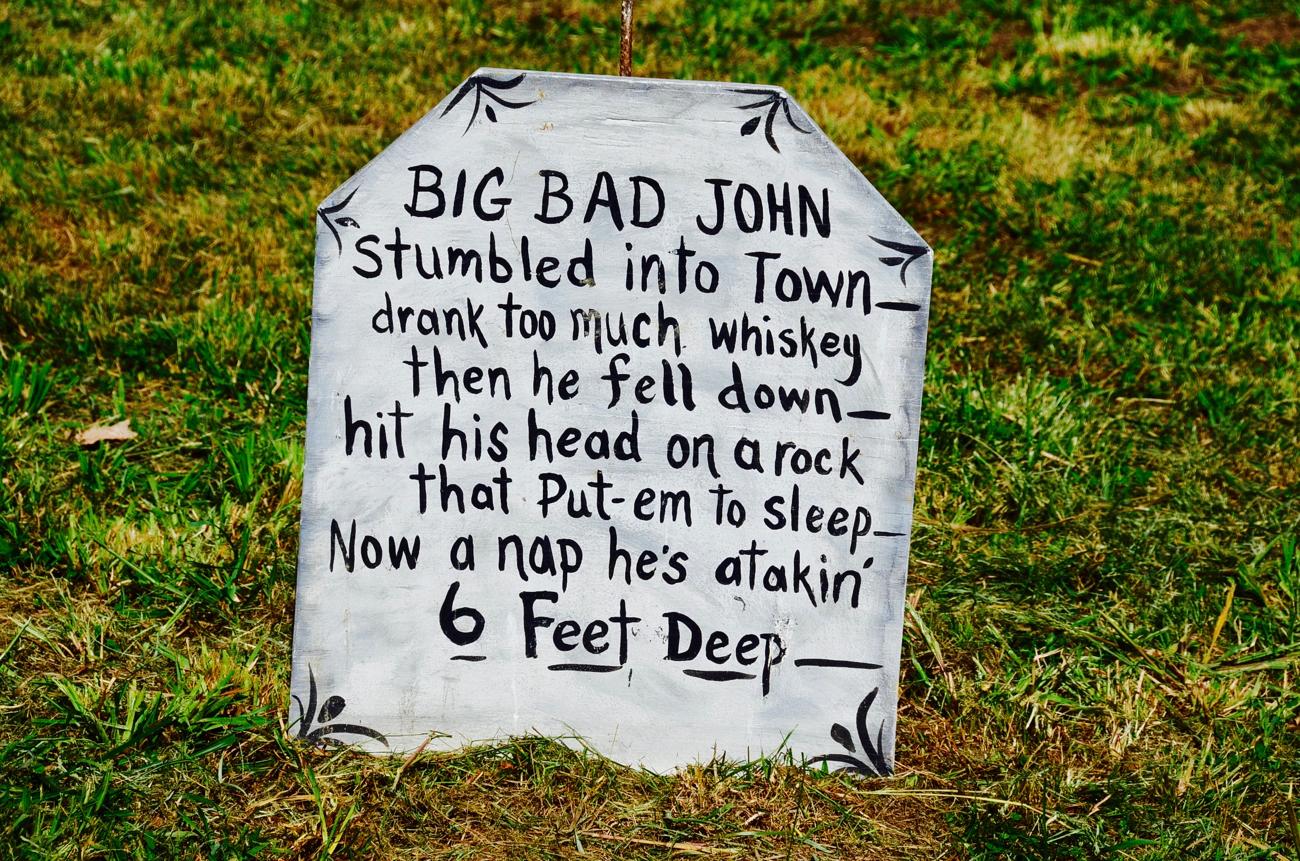 BIG BAD JOHN
Stumbled into Town—
drank too much whiskey
then he fell down—
hit his head on a rock
that Put-em to sleep—
Now a nap he's atakin'
6 Feet Deep—